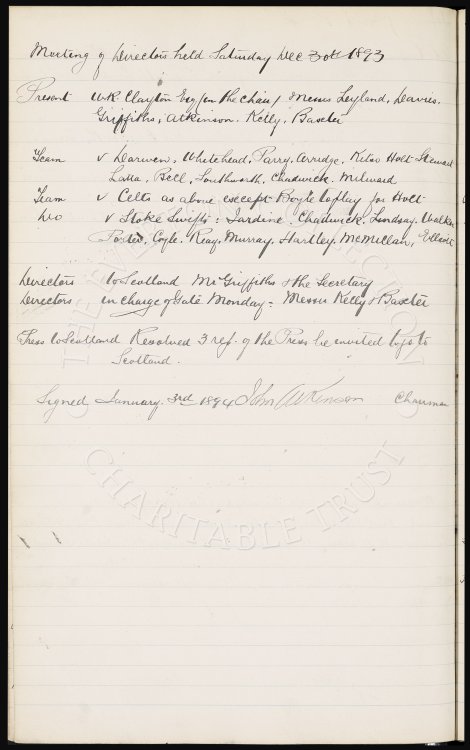 Meeting of Directors held Saturday Dec 30th 1893
Present W.R. Clayton Esq (in the chair) Messrs Leyland, Davies,
Griffiths, Atkinson. Kelly, Baxter
Team v Darwen, Whitehead, Parry, Arridge, Kelso Holt Stewart
Latta, Bell, Southworth, Chadwick. Milward
Team v Celts as above except Boyle to play for Holt
Do v Stoke Swifts: Jardine. Chadwick, Lindsay, Walker
Porter, Coyle. Reay, Murray, Hartley, McMillan, Elliott
Directors to Scotland Mr Griffiths & the Secretary
Directors in charge of Gate Monday - Messrs Kelly & Baxter
Press to Scotland Resolved 3 rep. of the Press be invited to go to
Scotland.
Signed January 3rd 1894 John Atkinson Chairman
CHARITABLE TRUST